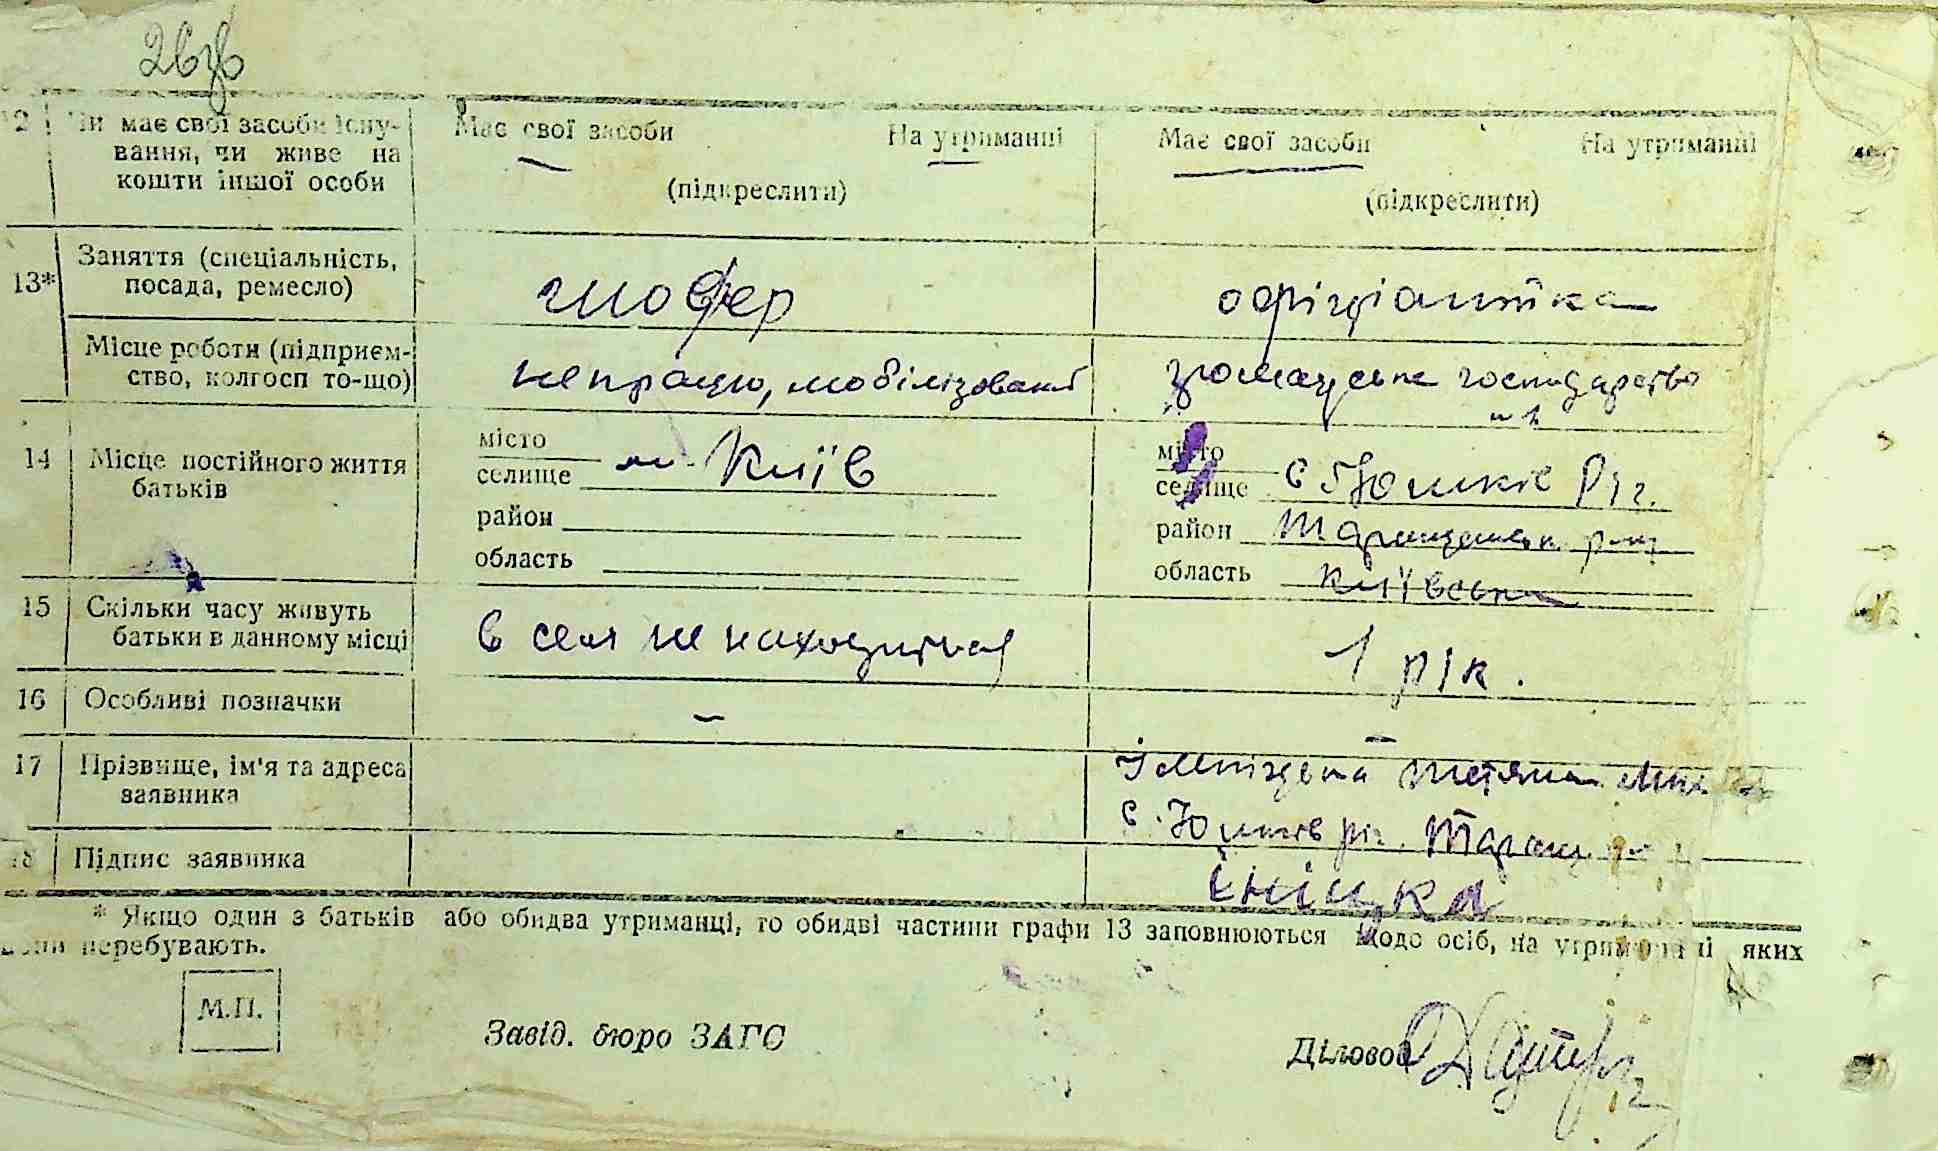 26зв
12 Чи має свої засоби існу- Має свої засоби На утриманні Має свої засоби На утриманні
вання, чи живе на
кошти іншої особи (підкреслити) (підкреслити)
13* Заняття (спеціальність,
посада, ремесло) шофер офіціантка
Місце роботи (підприєм-
ство, колгосп то-що) не працює, мобілізований громадське господарство
14 Місце постійного життя
батьків
місто
селище м. Київ
район
область
місто
селище с Юшків Ріг.
район Таращанськ. р-ну
область Київська
15 Скільки часу живуть
батьки в данному місці в селі не находиться 1 рік.
16 Особливі позначки – –
17 Прізвище, ім'я та адреса
заявника Тетяна
с. Юшків ріг. Таращ.
18 Підпис заявника
* Якщо один з батьків або обидва утриманці, то обидві частини графи 13 заповнюються щодо осіб, на утриманні яких
вони перебувають.
М.П.
Завід. бюро ЗАГС
Діловод